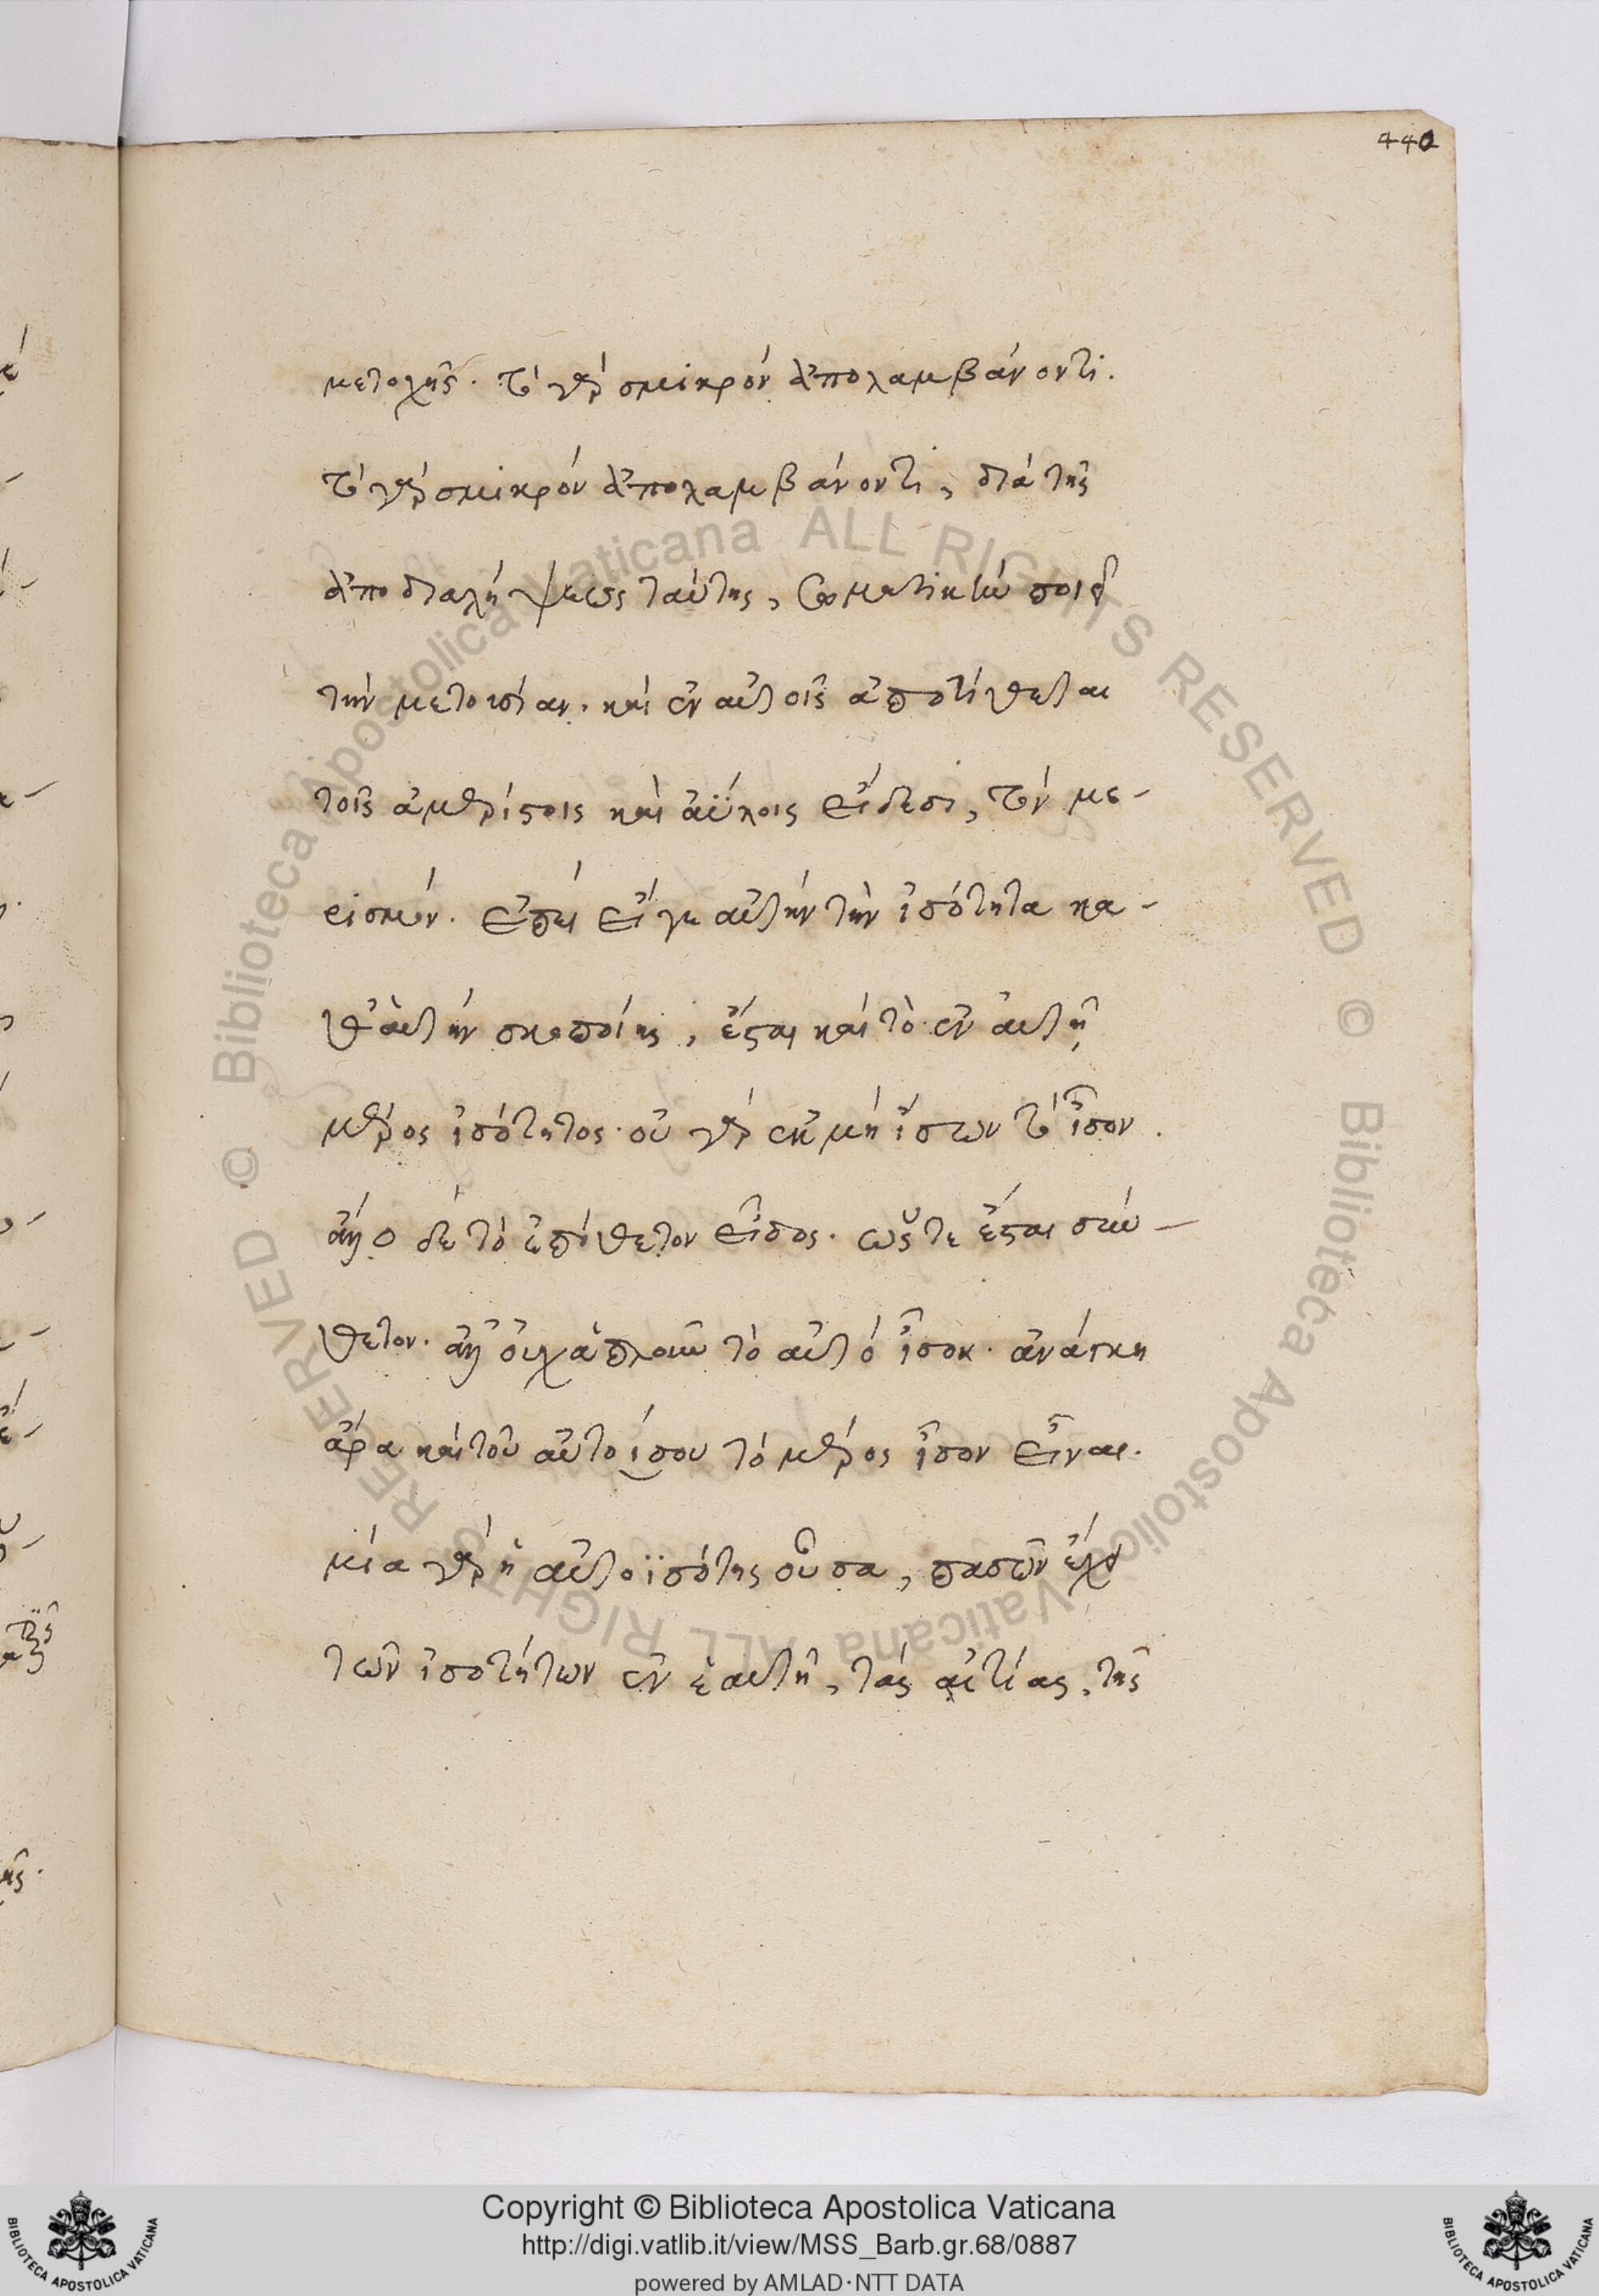 440
μετοχῆς. τὸ γὰρ σμικρὸν ἀπολαμβάνοντι.
τὸ γὰρ σμικρὸν ἀπολαμβάνοντι, διὰ τῆς
ἀποδιαλήψεως ταύτης, σωματικὴν ποιεῖ
τὴν μετουσίαν. καὶ ἐν αὐτοῖς ἀποτίθεται
τοῖς ἀμερίστοις καὶ ἀΰλοις εἴδεσι, τὸν με-
ρισμόν. ἐπεὶ εἴγε αὐτὴν τὴν ἰσότητα κα-
θ' αὑτὴν σκοποίης, ἔσται καὶ τὸ ἐν αὐτῇ
μέρος ἰσότητος. οὐ γὰρ ἐκ μὴ ἴσων τὸ ἴσον.
δὲ τὸ εἶδος. ὥστε ἔσται σύν-
θετον. ἀλλ' οὐχ ἁπλοῦν τὸ αὐτὸ ἴσον. ἀνάγκη
ἄρα καὶ τοῦ αὐτοίσου τὸ μέρος ἴσον εἶναι.
μία γὰρ ἡ αὐτοϊσότης οὖσα, πασῶν ἔχει
τῶν ἰσοτήτων ἐν ἑαυτῇ, τὰς αἰτίας, τῆς
Copyright © Biblioteca Apostolica Vaticana
http://digi.vatlib.it/view/MSS_Barb.gr.68/0887
powered by AMLAD·NTT DATA